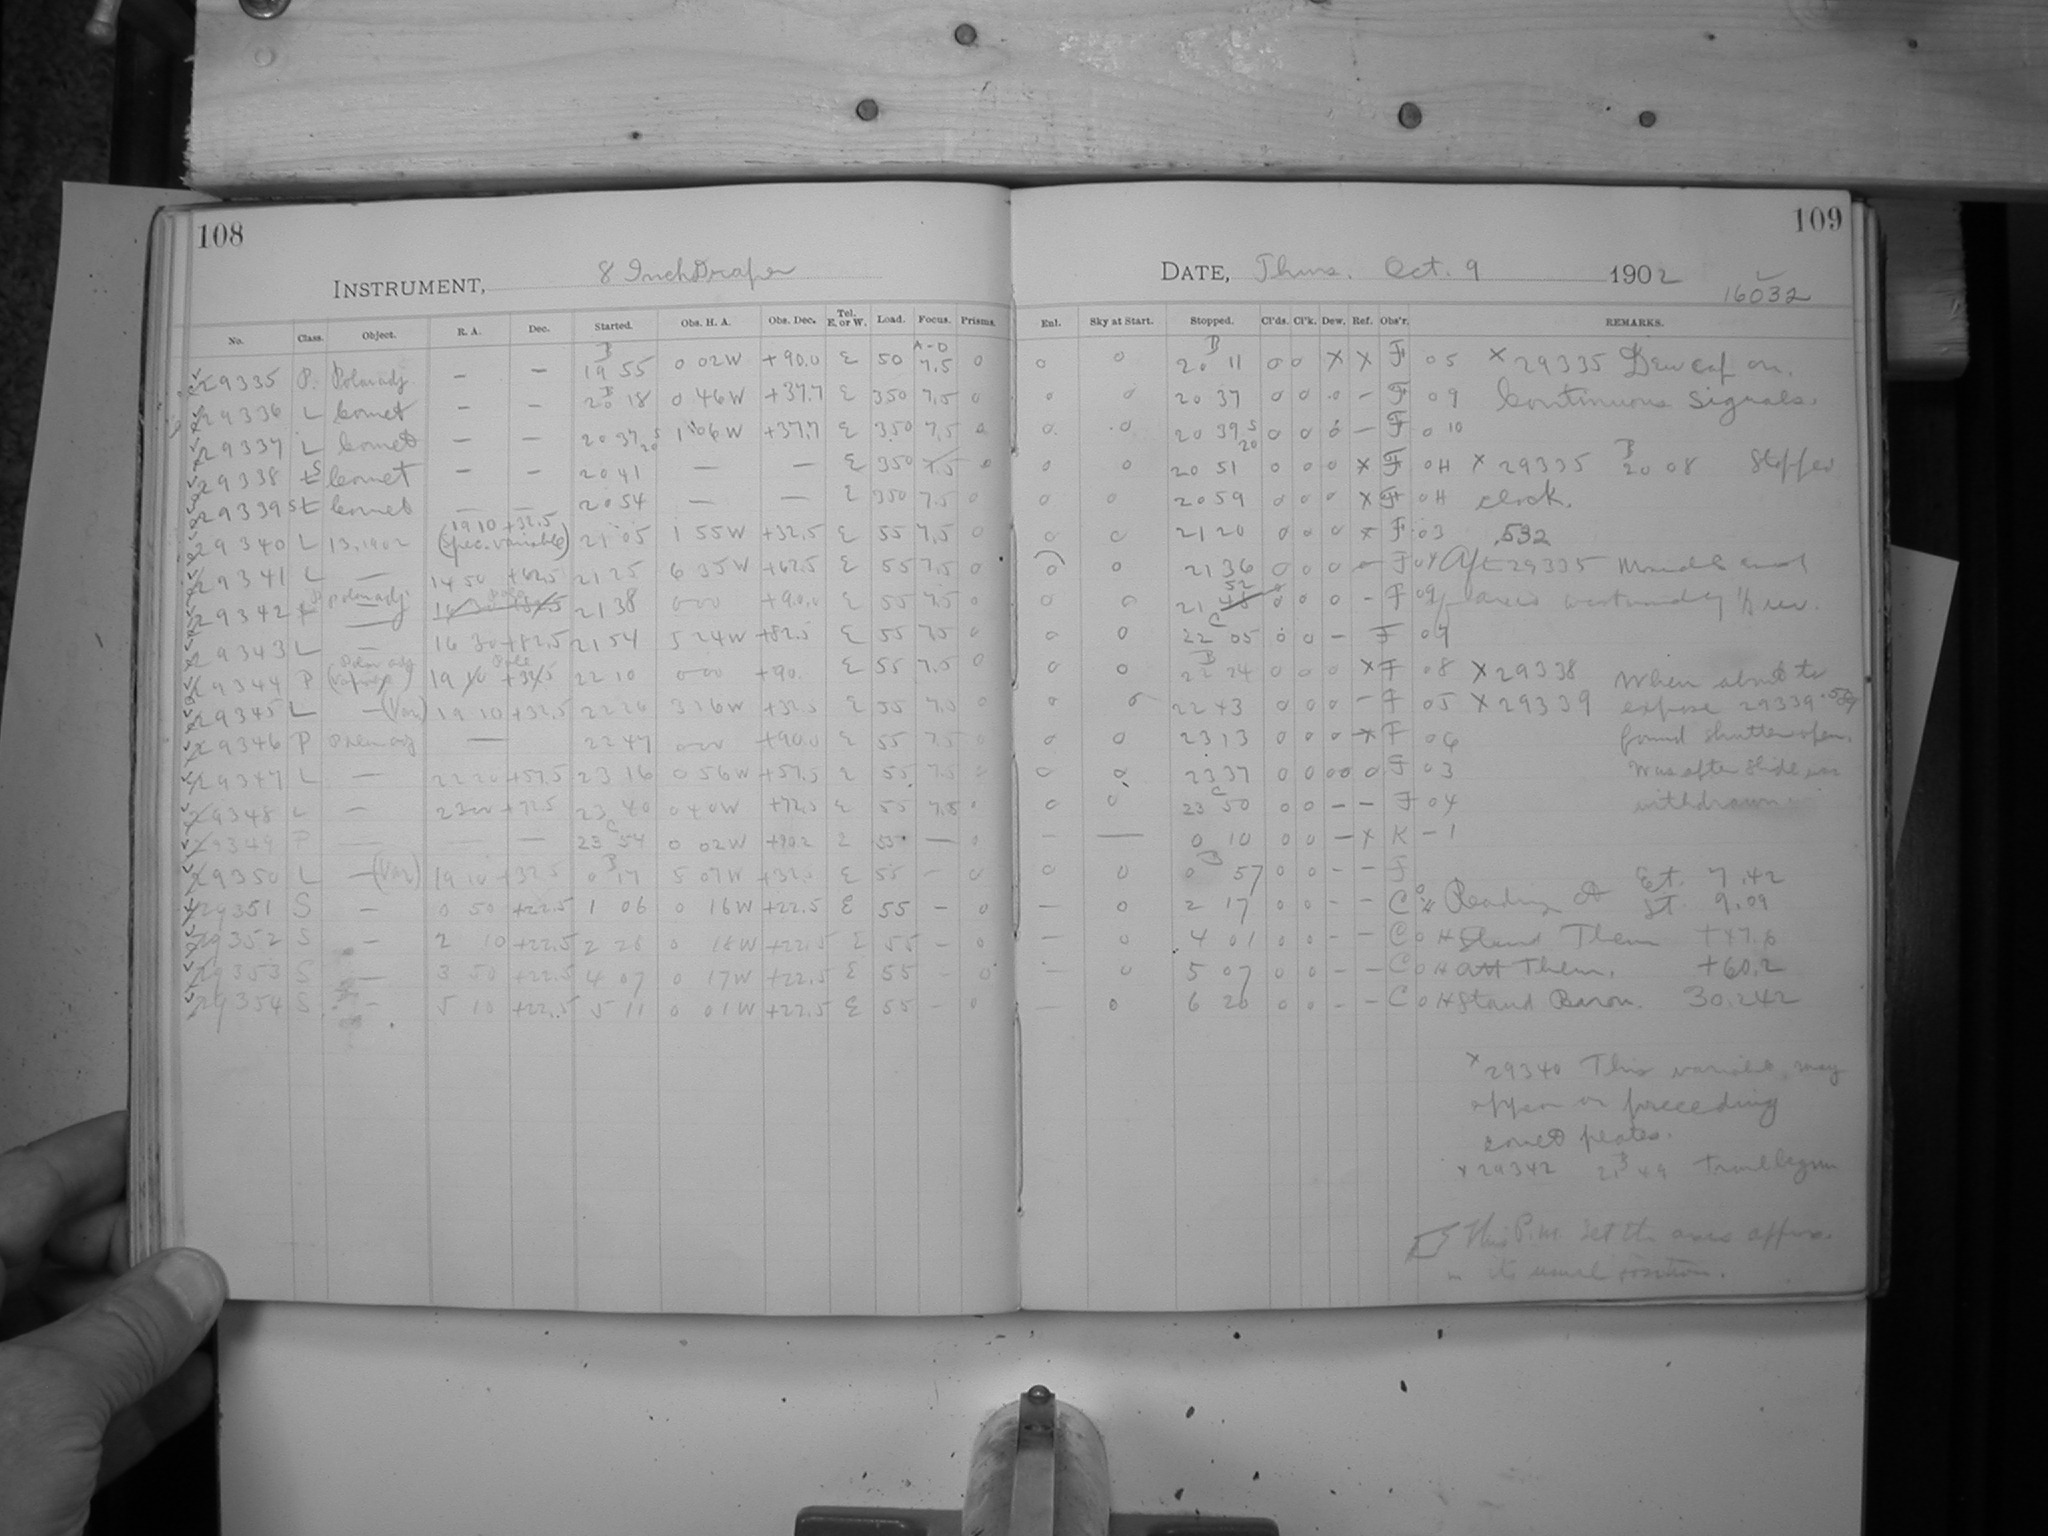 108
109
INSTRUMENT, 8 Inch Draper
DATE, Thurs. Oct. 9 1902
16032
No. Class. Object. R. A. Dec. Started. Obs. H. A. Obs. Dec. Tel. E. or W. Load. Focus. Prisms. Enl. Sky at Start. Stopped. Cl'ds. Cl'k. Dew. Ref. Obs'r. REMARKS.
29335 P. Polar adj. — — B 19 55 0 02 W +90.0 E 50 A-D 7.5 0 0 0 B 20 11 0 0 X X F 05 X 29335 Dew cap on.
29336 L Comet — — B 20 18 0 46 W +37.7 E 350 7.5 0 0 0 20 37 0 0 0 – F 09 Continuous Signals.
29337 L Comet — — 20 37 1 06 W +37.7 E 350 7.5 0 0 0 20 39 0 0 0 – F 0 10
29338 S Comet — — 20 41 — — E 350 7.5 0 0 0 20 51 0 0 0 X F 0H X 29335 B 20 08 Stopped
29339 S Comet — — 20 54 — — E 350 7.5 0 0 0 20 59 0 0 0 X F 0H clock.
29340 L 13,1902 19 10 +32.5 (Spec. variable) 21 05 1 55 W +32.5 E 55 7.5 0 0 0 21 20 0 0 0 x F 03 .532
29341 L — 14 50 +62.5 21 25 6 35 W +62.5 E 55 7.5 0 0 0 21 36 0 0 0 – F 04 Aft 29335 Moved
29342 Polar adj. Pole 21 38 000 +90.0 E 55 7.5 0 0 0 21 52 0 0 0 – F 09 axis westwardly 1/2 rev.
29343 L — 16 30 +82.5 21 54 5 24 W +82.5 E 55 7.5 0 0 0 C 22 05 0 0 – F 07
29344 P Polar adj. 19 10 Pole 22 10 000 +90. E 55 7.5 0 0 0 B 22 24 0 0 0 X F 08 X 29338 When about to
29345 L — (Var) 19 10 +32.5 22 26 3 16 W +32.5 E 55 7.5 0 0 0 22 43 0 0 0 – F 05 X 29339 expose 29339
29346 P Polar adj — 22 47 000 +90.0 E 55 7.5 0 0 0 23 13 0 0 0 X F 06 found shutter open.
29347 L — 22 20 +57.5 23 16 0 56 W +57.5 E 55 7.5 0 0 0 23 37 0 0 00 0 F 03 Was after slide was
29348 L — 23 00 +72.5 23 40 0 40 W +72.5 E 55 7.5 0 0 0 C 23 50 0 0 – – F 04 withdrawn.
29349 P — — — C 23 54 0 02 W +90.2 E 55 — 0 — — 0 10 0 0 – X K – 1
29350 L — (Var) 19 10 +32.5 B 0 17 5 07 W +32.5 E 55 – 0 0 0 B 0 57 0 0 – – F Et. 7.42
29351 S — 0 50 +22.5 1 06 0 16 W +22.5 E 55 – 0 — 0 2 17 0 0 – – C Reading at St. 9.09
29352 S — 2 10 +22.5 2 28 0 18 W +22.5 E 55 – 0 — 0 4 01 0 0 – – C 0H Stand Them +47.6
29353 S — 3 50 +22.5 4 07 0 17 W +22.5 E 55 – 0 — 0 5 07 0 0 – – C 0H Att Them. +60.2
29354 S — 5 10 +22.5 5 11 0 01 W +22.5 E 55 – 0 — 0 6 20 0 0 – – C 0H Stand Barom. 30.242
X 29340 This variable may
appear on preceding
comet plates.
X 29342 21 B 49 Trail began
This P.M. Set the axis approx.
in its usual position.